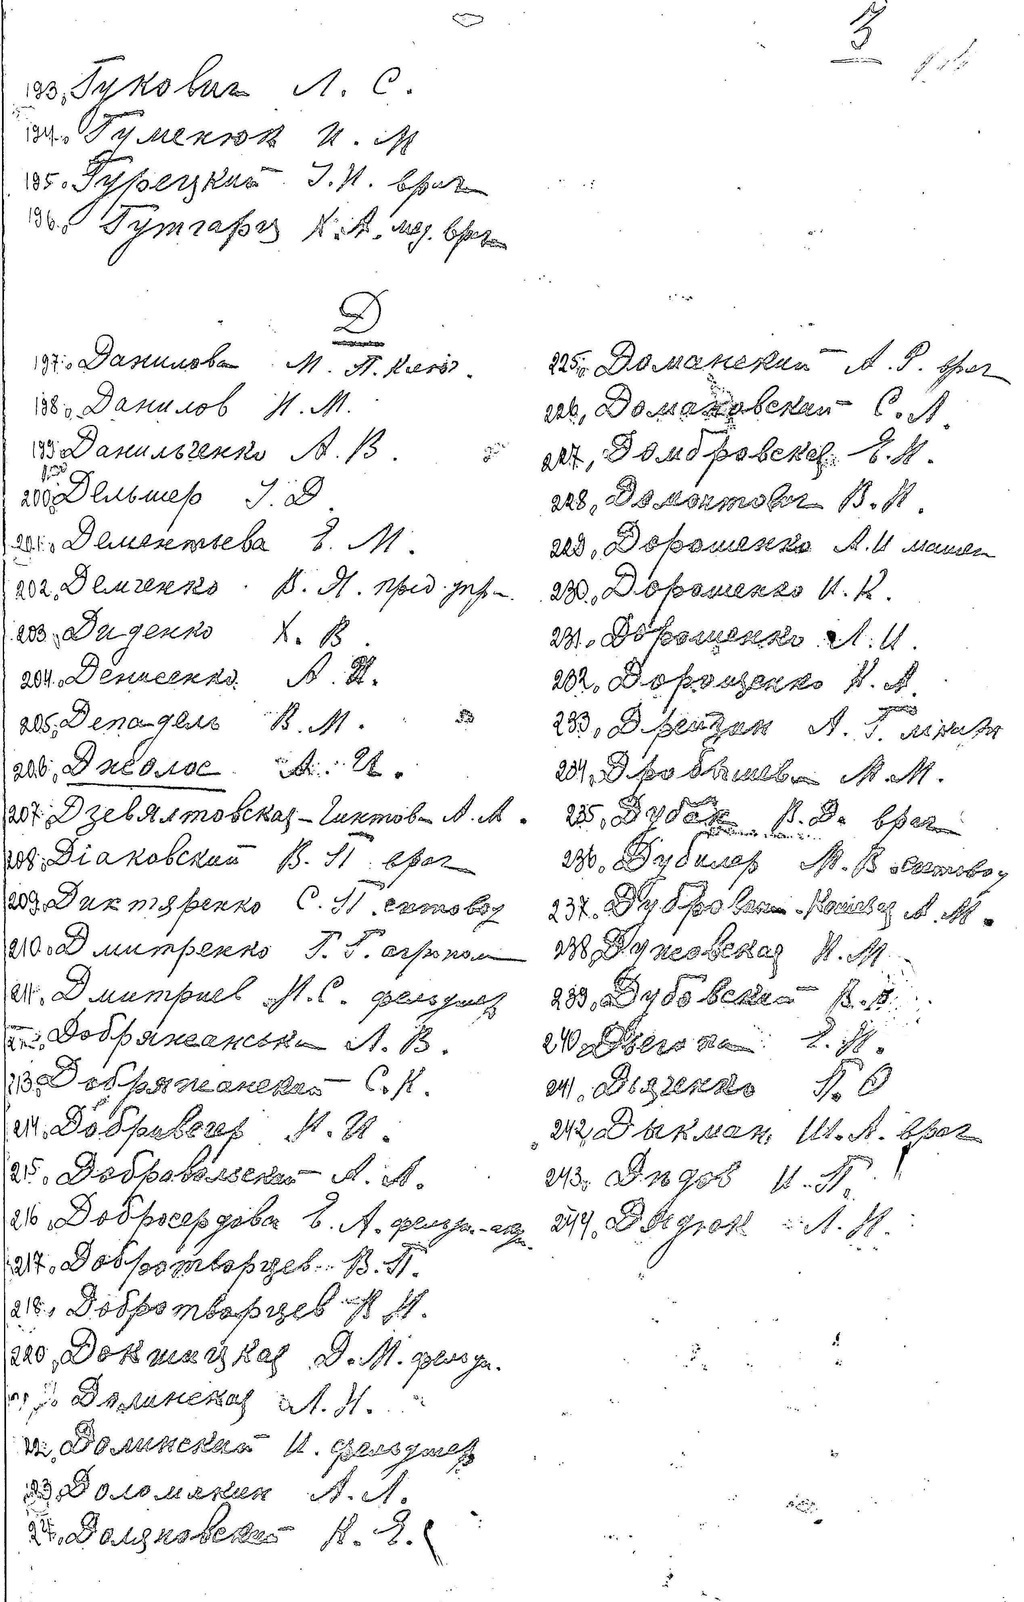 3
193. Гукович Л. С.
194. Гуменюк И. М
195. Гурецкий І. И. врач
196. Гутгарц Х. А. мед. врач
Д
197. Данилова М. П.
198. Данилов И. М.
199. Данильченко А. В.
200. Дельшер І. Д.
201. Дементьева Е. М.
202. Демченко В. Я. пред.
203. Диденко Х. В.
204. Денисенко А. И.
205. Депадель В. М.
206. Джолос А. И.
207. Дзевялтовская-Гинтовт А. М.
208. Діаковский В. П. врач
209. Диктяренко С. П. счетовод
210. Дмитренко Г. Г. агроном
211. Дмитриев Н. С. фельдшер
Добржанська Л. В.
213. Добржанский С. К.
214. Добривечер И. И.
215. Добровольский А. А.
216. Добросердова Е. А.
217. Добротворцев В. П.
218. Добротворцев Н. Н.
220. Докшицкая Д. М. фельдш.
Долинская Л. Н.
22. Долинский И. фельдшер
23. Доломакин А. Л.
24. Доляновский К. Е.
225. Доманский А. Р. врач
226. Домаховский С. Л.
227. Домбровская Е. Н.
228. Домонтович В. И.
229. Дорошенко А. И
230. Дорошенко И. К.
231. Дорошенко Л. И.
232. Дорошенко Н. А.
233. Дрейзин А. Г.
234. Дробышева М. М.
235. Дубак В. Д. врач
236. Дубиляр М. В. счетовод
237. А. М.
238. Дужовская Н. М
239. Дубовский В.
240. Е. Н.
241. Дьяченко П. О
242. Дыкман Ш. А. врач
243. Дядов И. П.
244. Дядюк Л. Н.